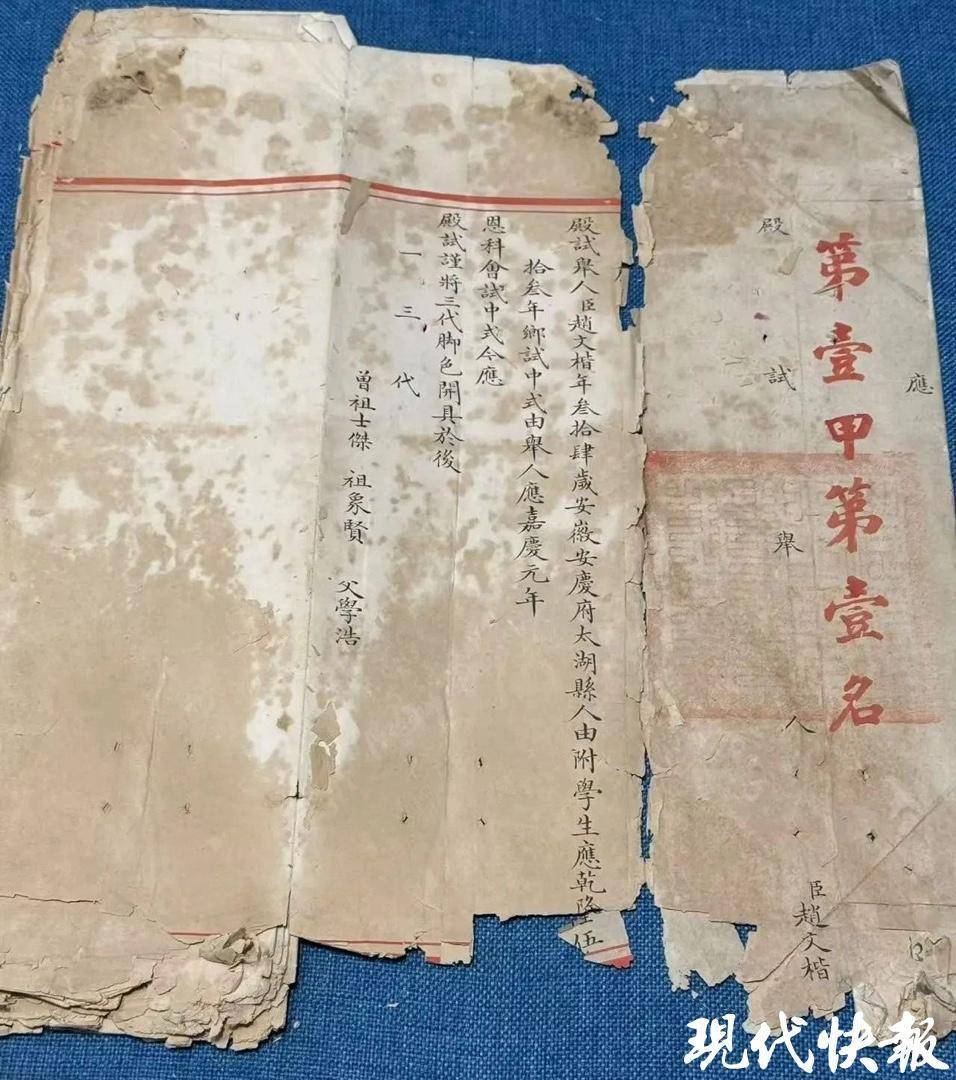 第壹甲第壹名
應
殿試舉人臣趙文楷
殿試舉人臣趙文楷年叁拾肆歲安徽安慶府太湖縣人由附學生應乾隆伍
拾叁年鄉試中式由舉人應嘉慶元年
恩科會試中式今應
殿試謹將三代脚色開具於後
一三代
曾祖士傑 祖象賢 父學浩
現代快報